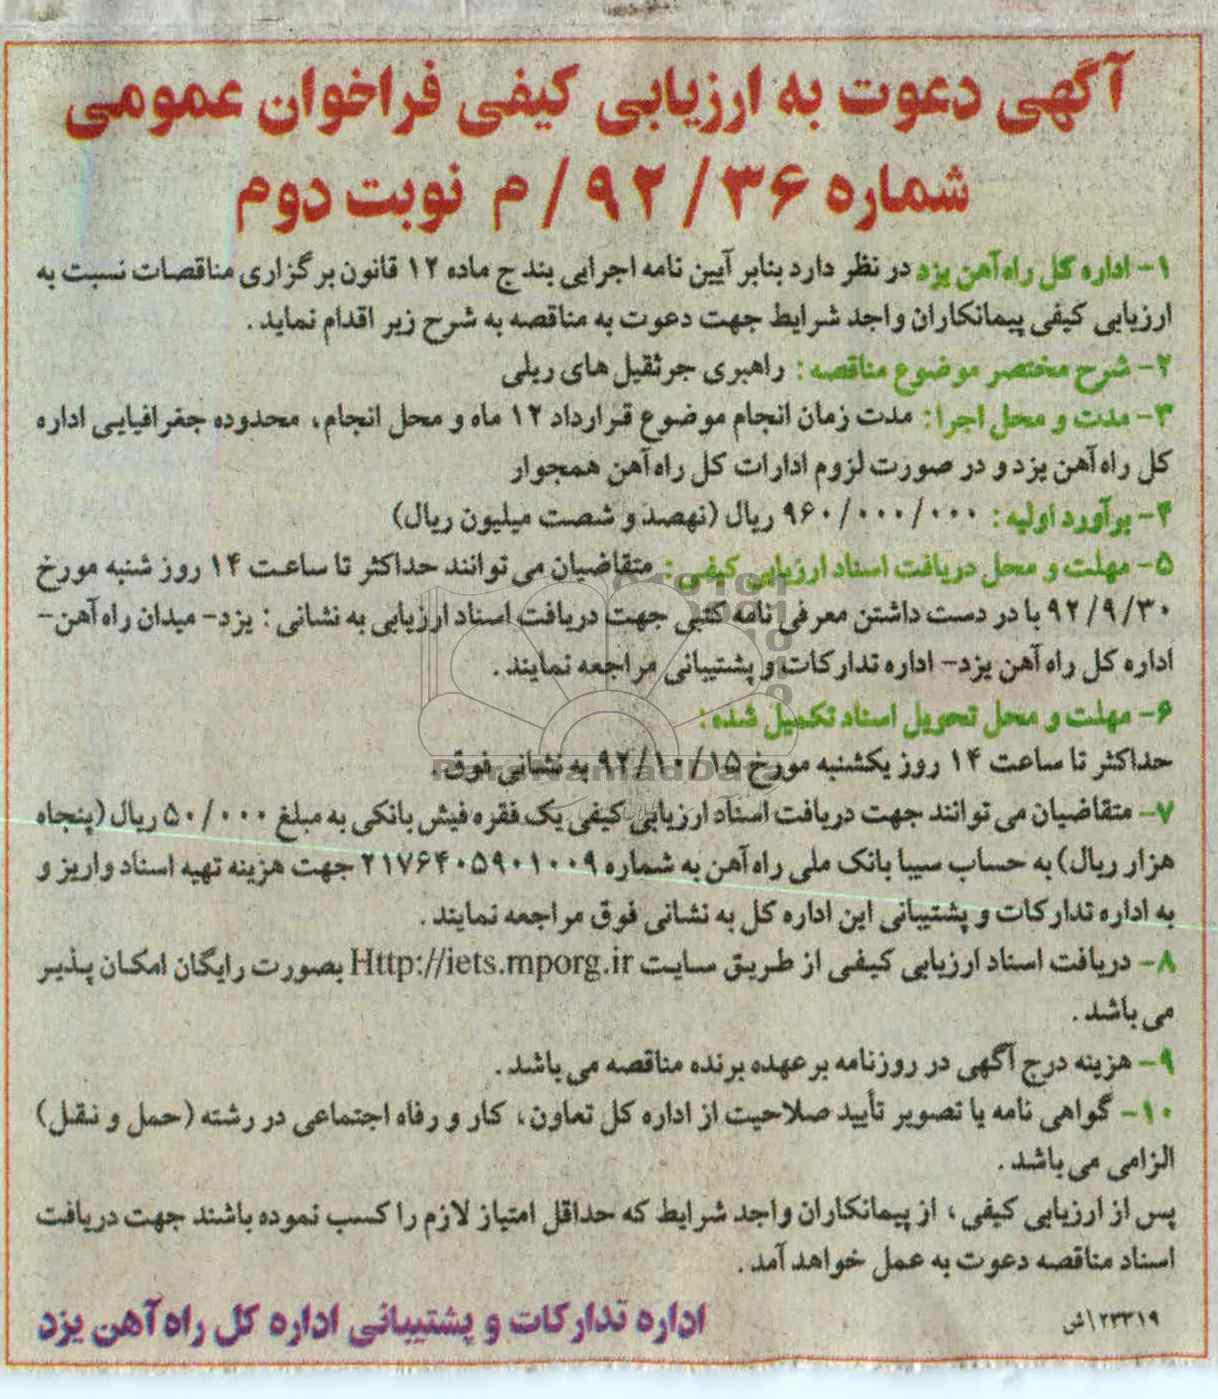 آگهی دعوت به ارزیابی کیفی فراخوان عمومی
شماره ۹۲/۳۶/م نوبت دوم
۱- اداره کل راه‌آهن یزد در نظر دارد بنابر آیین نامه اجرایی بند ج ماده ۱۲ قانون برگزاری مناقصات نسبت به
ارزیابی کیفی پیمانکاران واجد شرایط جهت دعوت به مناقصه به شرح زیر اقدام نماید.
۲- شرح مختصر موضوع مناقصه: راهبری جرثقیل های ریلی
۳- مدت و محل اجرا: مدت زمان انجام موضوع قرارداد ۱۲ ماه و محل انجام، محدوده جغرافیایی اداره
کل راه‌آهن یزد و در صورت لزوم ادارات کل راه‌آهن همجوار
۴- برآورد اولیه: ۹۶۰/۰۰۰/۰۰۰ ریال (نهصد و شصت میلیون ریال)
۵- مهلت و محل دریافت اسناد ارزیابی کیفی: متقاضیان می توانند حداکثر تا ساعت ۱۴ روز شنبه مورخ
۹۲/۹/۳۰ با در دست داشتن معرفی نامه کتبی جهت دریافت اسناد ارزیابی به نشانی: یزد- میدان راه‌آهن-
اداره کل راه آهن یزد- اداره تدارکات و پشتیبانی مراجعه نمایند.
۶- مهلت و محل تحویل اسناد تکمیل شده:
حداکثر تا ساعت ۱۴ روز یکشنبه مورخ ۹۲/۱۰/۱۵ به نشانی فوق.
۷- متقاضیان می توانند جهت دریافت اسناد ارزیابی کیفی یک فقره فیش بانکی به مبلغ ۵۰/۰۰۰ ریال (پنجاه
هزار ریال) به حساب سیبا بانک ملی راه‌آهن به شماره ۲۱۷۶۴۰۵۹۰۱۰۰۹ جهت هزینه تهیه اسناد واریز و
به اداره تدارکات و پشتیبانی این اداره کل به نشانی فوق مراجعه نمایند.
۸- دریافت اسناد ارزیابی کیفی از طریق سایت Http://iets.mporg.ir بصورت رایگان امکان پذیر
می باشد.
۹- هزینه درج آگهی در روزنامه بر عهده برنده مناقصه می باشد.
۱۰- گواهی نامه یا تصویر تأیید صلاحیت از اداره کل تعاون، کار و رفاه اجتماعی در رشته (حمل و نقل)
الزامی می باشد.
پس از ارزیابی کیفی، از پیمانکاران واجد شرایط که حداقل امتیاز لازم را کسب نموده باشند جهت دریافت
اسناد مناقصه دعوت به عمل خواهد آمد.
۲۳۳۱۹\ش
اداره تدارکات و پشتیبانی اداره کل راه‌آهن یزد
ParsNamadData